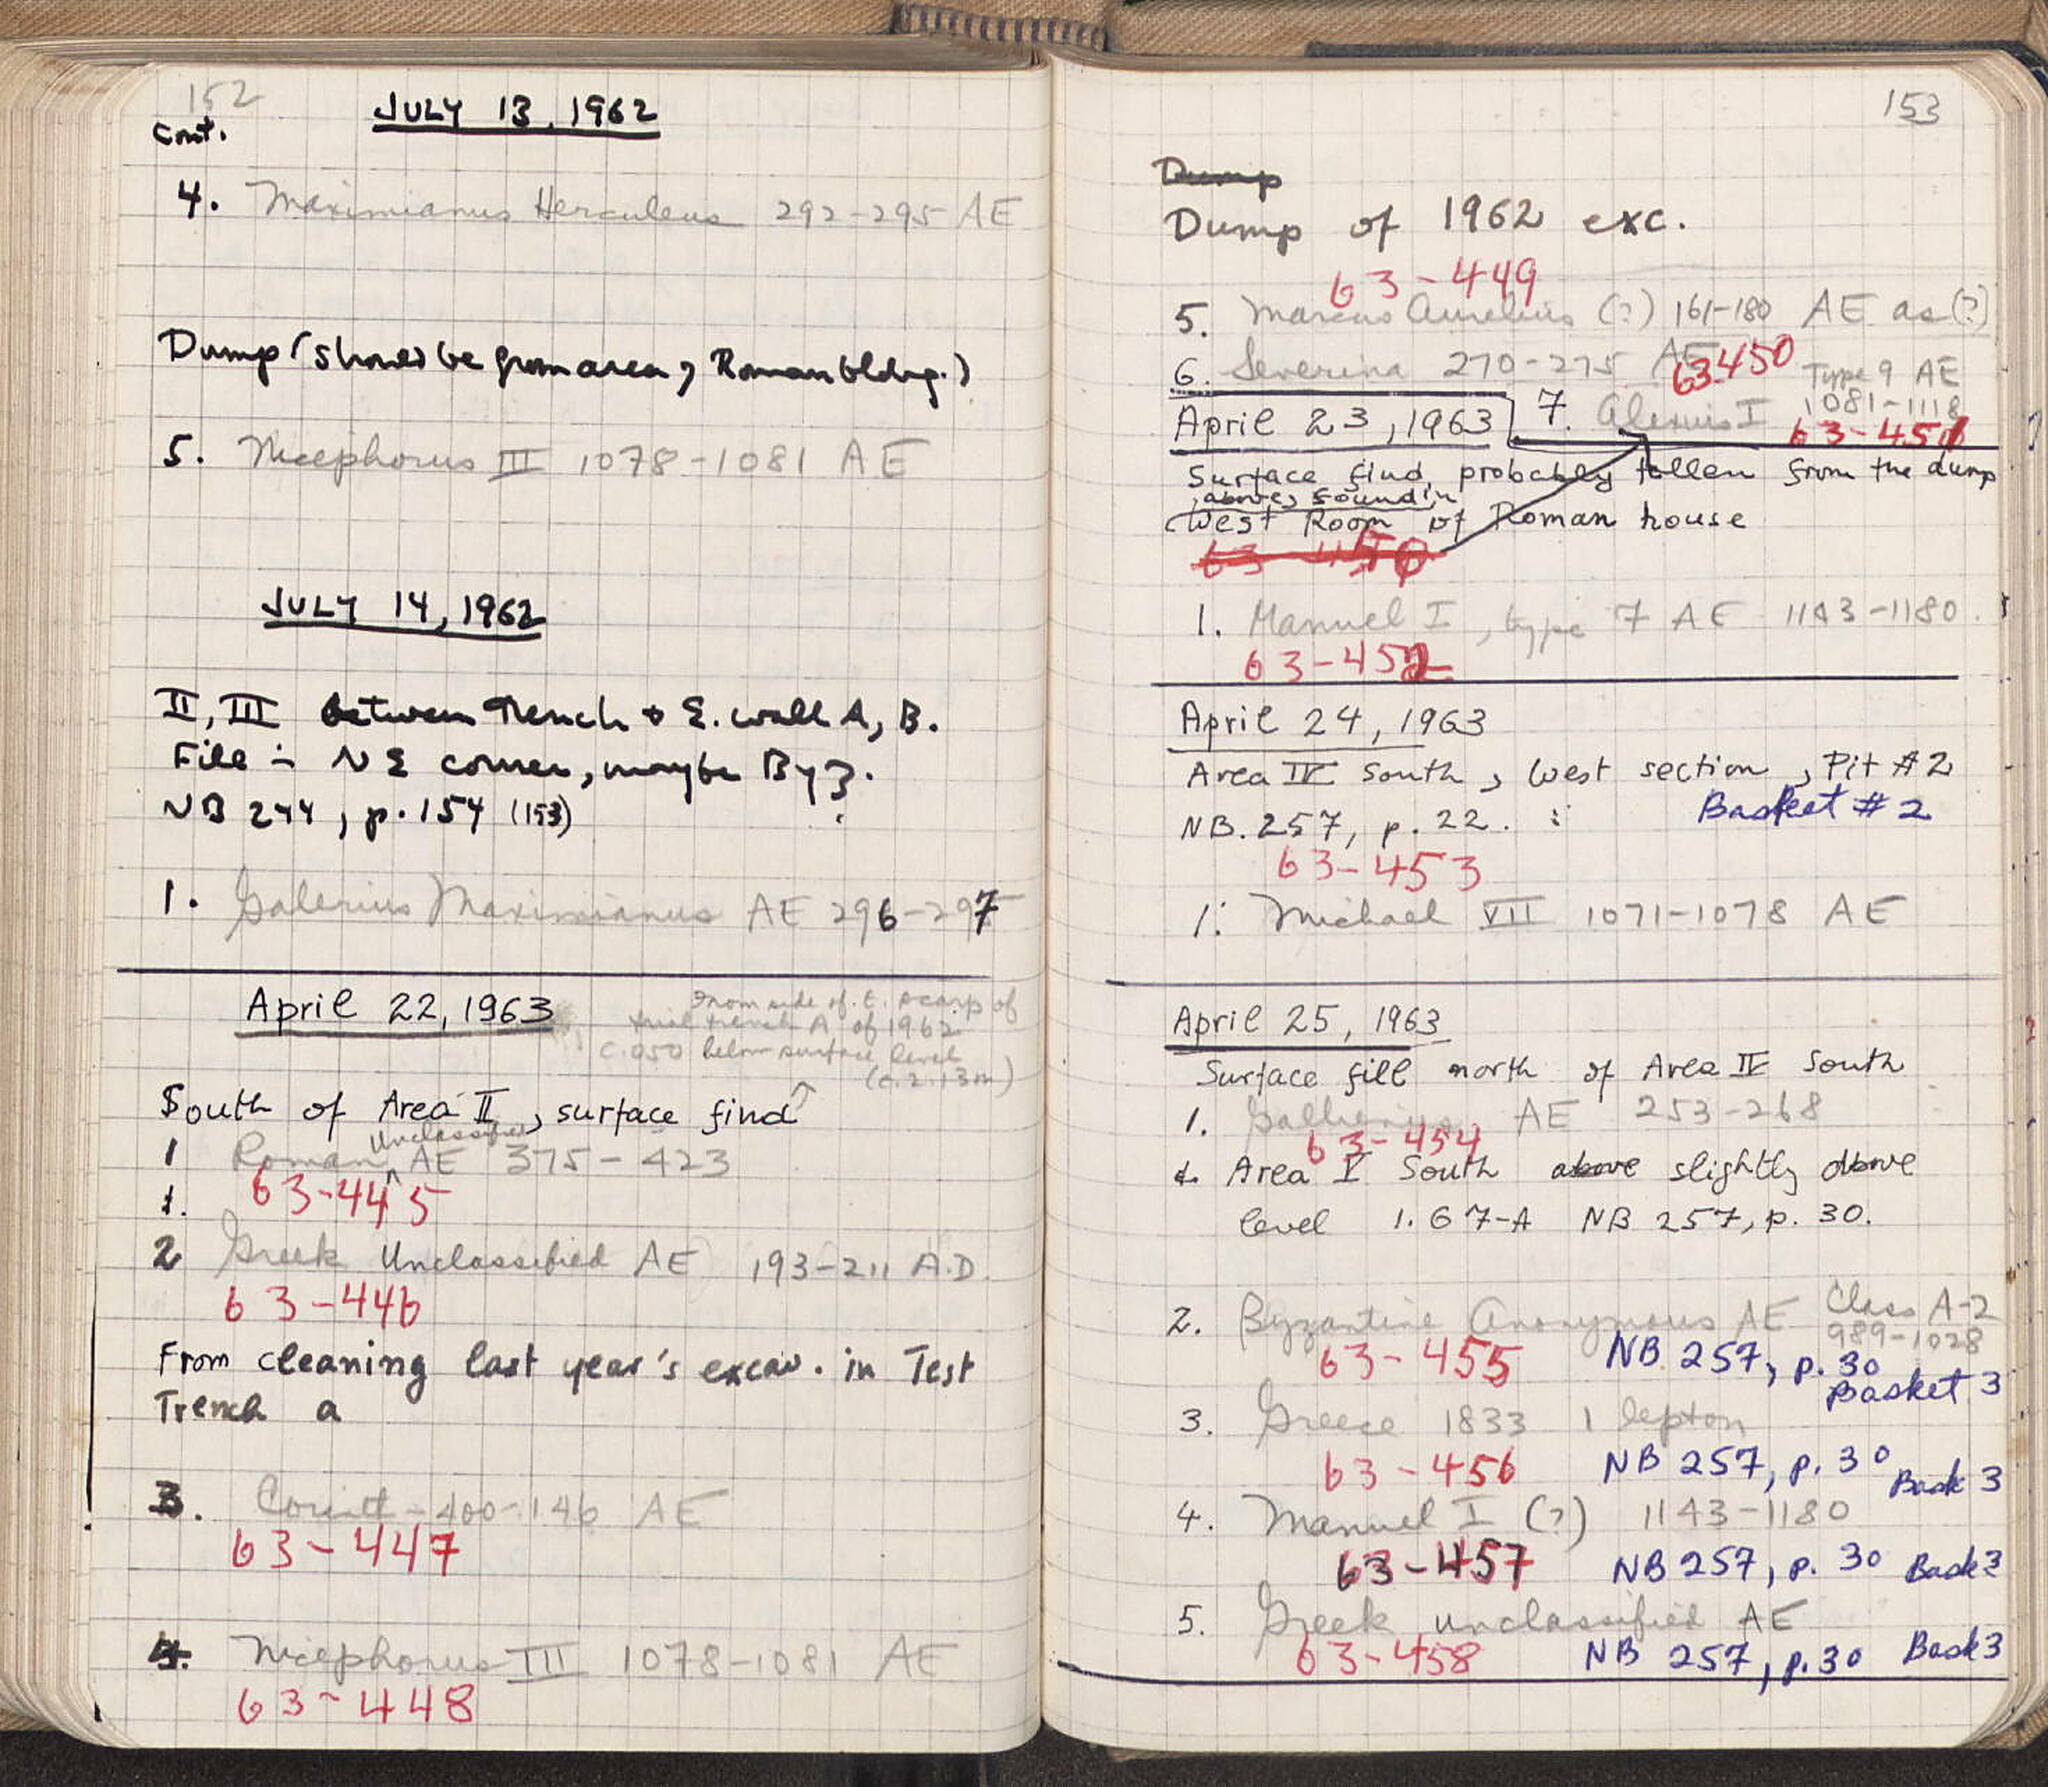 152
Cont.
JULY 13, 1962
4. Maximianus Herculeus 292-295 AE
Dump (should be from area of Roman bldng.)
5. Nicephorus III 1078-1081 AE
JULY 14, 1962
II, III between trench & E. wall A, B.
Fill - NE corner, maybe Byz.
NB 244, p. 154 (153)
1. Galerius Maximianus AE 296-297
April 22, 1963
From side of E. scarp of
trial trench A of 1962
c. 050 below surface level
(c. 2.13m)
South of Area II, surface find
1 Roman Unclassified AE 375-423
1. 63-445
2 Greek Unclassified AE 193-211 A.D.
63-446
From cleaning last year's excav. in Test
Trench a
3. Corinth - 400-146 AE
63-447
4. Nicephorus III 1078-1081 AE
63-448
153
Dump
Dump of 1962 exc.
63-449
5. Marcus Aurelius (?) 161-180 AE as (?)
6. Severina 270-275 AE 63-450
April 23, 1963 7. Alexius I Type 9 AE
1081-1118
63-451
Surface find, probably fallen from the dump
above, found in
West Room of Roman house
63-450
1. Manuel I, type 7 AE 1143-1180.
63-452
April 24, 1963
Area IV South, West section, Pit #2
NB. 257, p. 22. Basket #2
63-453
1. Michael VII 1071-1078 AE
April 25, 1963
Surface fill north of Area IV South
1. Gallienus AE 253-268
63-454
Area V South above slightly above
level 1.67-A NB 257, p. 30.
2. Byzantine Anonymous AE Class A-2
989-1028
63-455 NB 257, p. 30
Basket 3
3. Greece 1833 1 lepton
63-456 NB 257, p. 30 Bask 3
4. Manuel I (?) 1143-1180
63-457 NB 257, p. 30 Bask 3
5. Greek unclassified AE
63-458 NB 257, p. 30 Bask 3